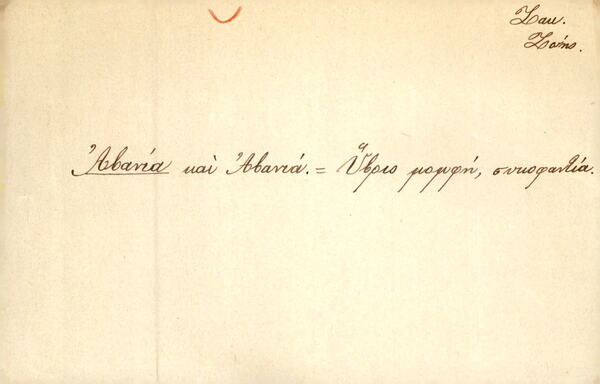 Ζακ.
Ζώης.
Ἀβανία καὶ Ἀβανιά. = Ὕβρις μομφή, συκοφαντία.